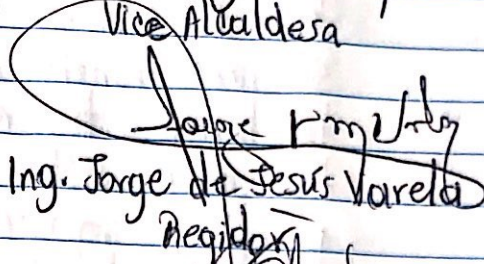 Vice Alcaldesa
Jorge
Ing. Jorge de Jesús Varela
Regidor